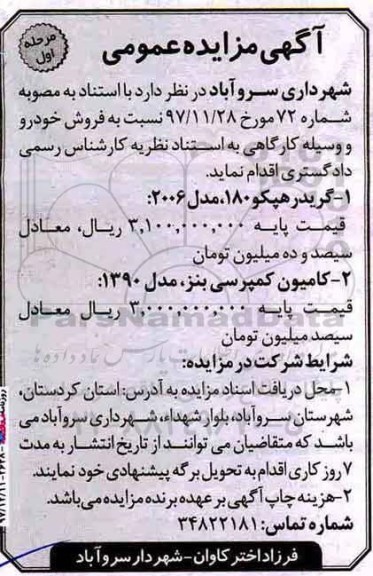 مرحله
اول
آگهی مزایده عمومی
شهرداری سروآباد در نظر دارد با استناد به مصوبه
شماره ۷۲ مورخ ۹۷/۱۱/۲۸ نسبت به فروش خودرو
و وسیله کارگاهی به استناد نظریه کارشناس رسمی
دادگستری اقدام نماید.
۱-گریدر هپکو ۱۸۰، مدل ۲۰۰۶:
قیمت پایه ۳,۱۰۰,۰۰۰,۰۰۰ ریال، معادل
سیصد و ده میلیون تومان
۲-کامیون کمپرسی بنز، مدل ۱۳۹۰:
قیمت پایه ۳,۰۰۰,۰۰۰,۰۰۰ ریال معادل
سیصد میلیون تومان
شرایط شرکت در مزایده:
۱-محل دریافت اسناد مزایده به آدرس: استان کردستان،
شهرستان سروآباد، بلوار شهداء، شهرداری سروآباد می
باشد که متقاضیان می توانند از تاریخ انتشار به مدت
۷ روز کاری اقدام به تحویل برگه پیشنهادی خود نمایند.
۲-هزینه چاپ آگهی بر عهده برنده مزایده می‌باشد.
شماره تماس: ۳۴۸۲۲۱۸۱
فرزاد اختر کاوان-شهردار سروآباد
ParsNamadData